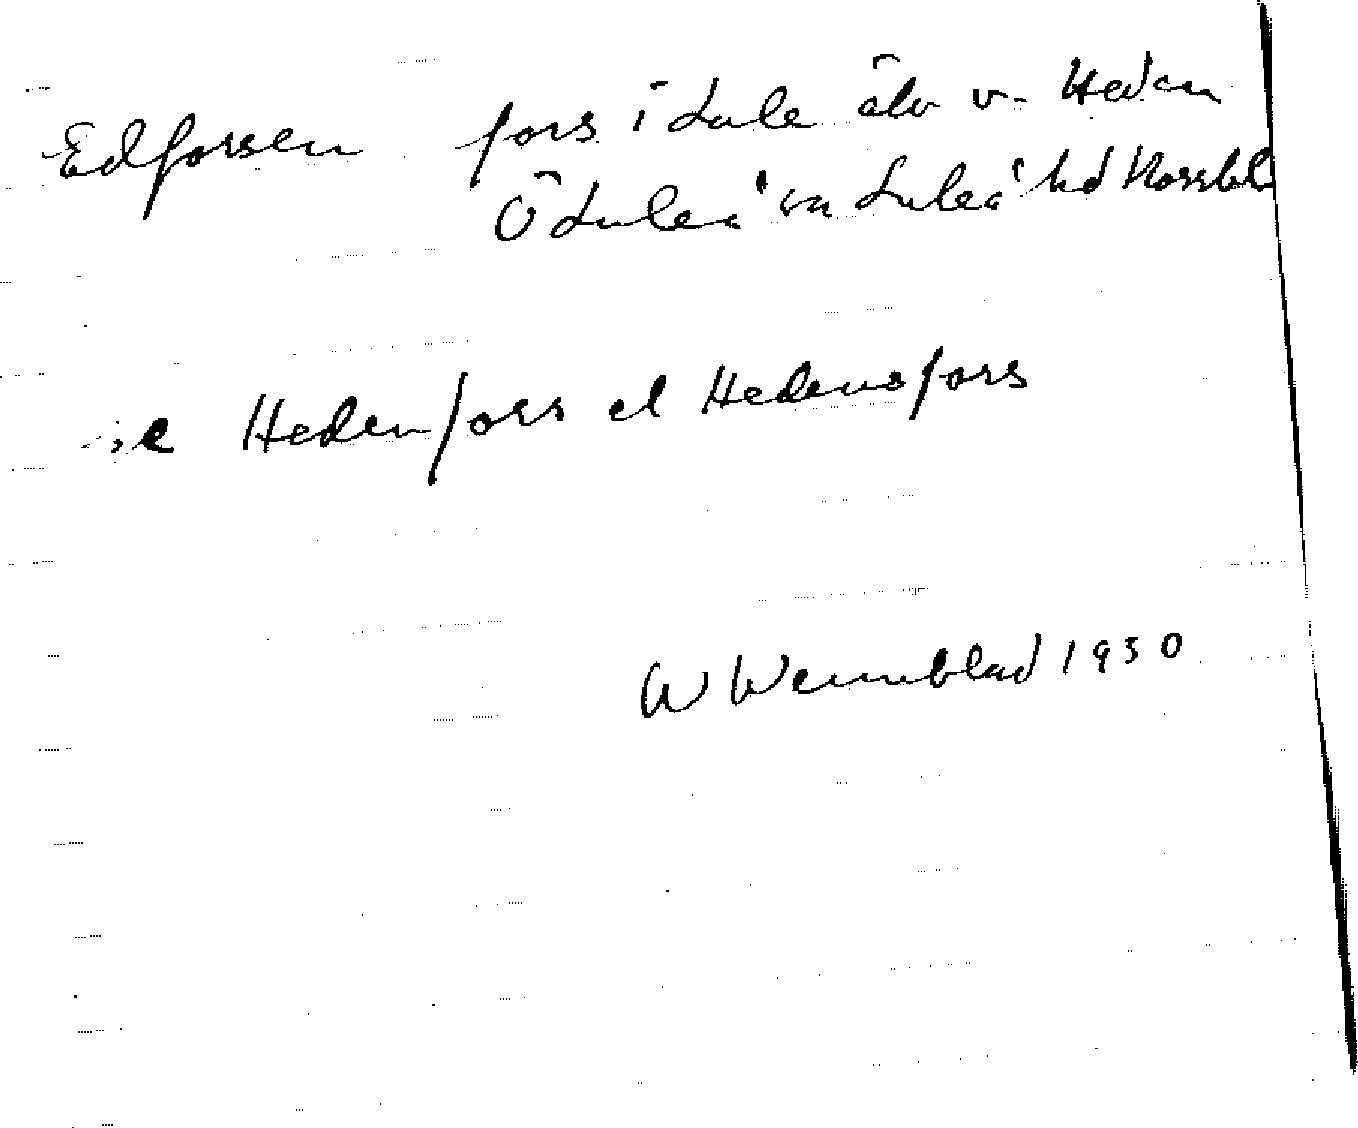 Edforsen fors i Lule älv v. Heden
Ö Luleå sn Luleå hd Norrbl
se Hedenfors el Hedensfors
W Wennblad 1930